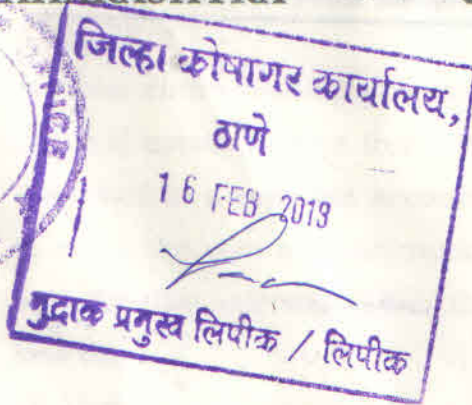 जिल्हा कोषागर कार्यालय,
ठाणे
16 FEB 2019
मुद्राक प्रमुख लिपीक / लिपीक